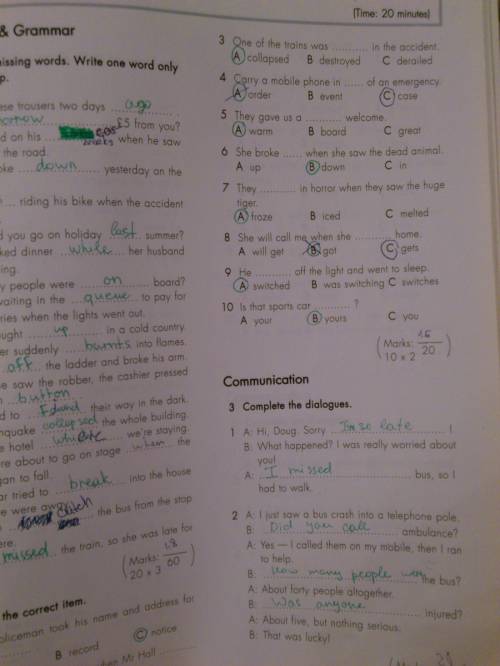 (Time: 20 minutes)
& Grammar
issing words. Write one word only
p.
ese trousers two days ago
orrow £5 from you?
d on his when he saw
the road.
oke down yesterday on the
riding his bike when the accident
d you go on holiday last summer?
ked dinner while her husband
ing.
y people were on board?
vaiting in the queue to pay for
ries when the lights went out.
ought up in a cold country.
er suddenly bursts into flames.
off the ladder and broke his arm.
e saw the robber, the cashier pressed
button
d to Found their way in the dark.
nquake collapsed the whole building.
e hotel where we're staying.
re about to go on stage when the
gan to fall.
ar tried to break into the house
e were away.
catch the bus from the stop
ere.
missed the train, so she was late for
(Marks: 18/60)
20 x 3
the correct item.
oliceman took his name and address for
B record C notice
Mr Hall
3 One of the trains was ........... in the accident.
A collapsed B destroyed C derailed
4 Carry a mobile phone in ...... of an emergency.
A order B event C case
5 They gave us a ........... welcome.
A warm B board C great
6 She broke ...... when she saw the dead animal.
A up B down C in
7 They ........... in horror when they saw the huge
tiger.
A froze B iced C melted
8 She will call me when she ........... home.
A will get B got C gets
9 He ........... off the light and went to sleep.
A switched B was switching C switches
10 Is that sports car ........... ?
A your B yours C you
(Marks: 16/20)
10 x 2
Communication
3 Complete the dialogues.
1 A: Hi, Doug. Sorry I'm so late !
B: What happened? I was really worried about
you!
A: I missed bus, so I
had to walk.
2 A: I just saw a bus crash into a telephone pole.
B: Did you call ambulance?
A: Yes — I called them on my mobile, then I ran
to help.
B: How many people were the bus?
A: About forty people altogether.
B: Was anyone injured?
A: About five, but nothing serious.
B: That was lucky!